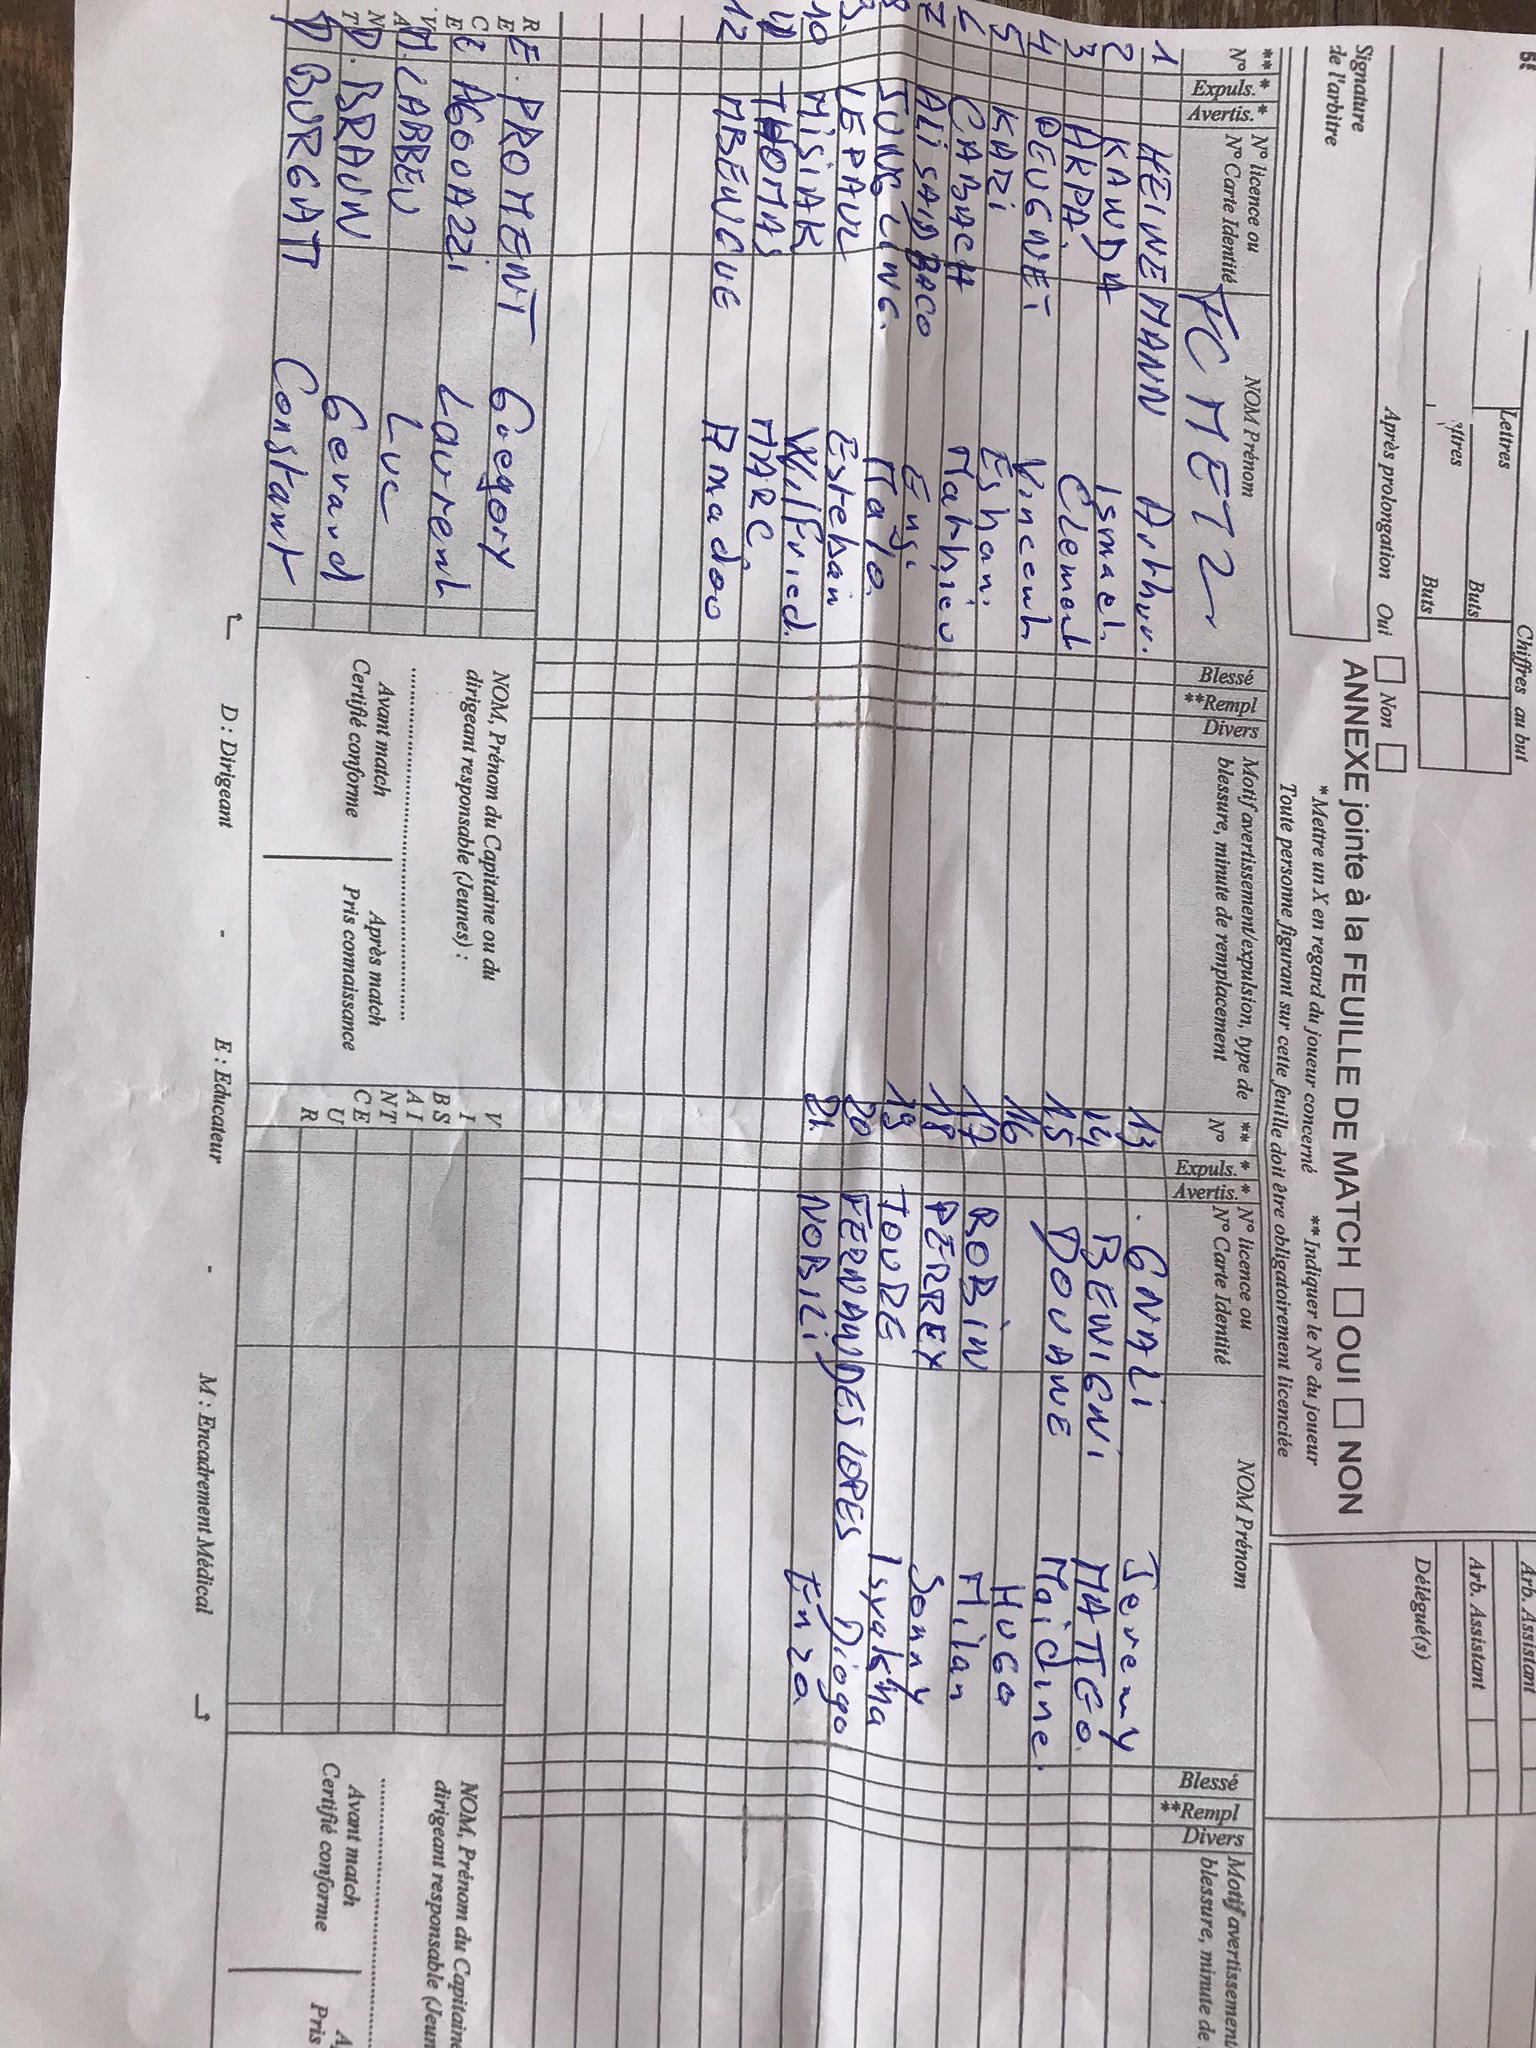 Lettres
Chiffres au but
Buts
Buts
Après prolongation Oui Non
Signature
de l'arbitre
Arb. Assistant
Arb. Assistant
Délégué(s)
ANNEXE jointe à la FEUILLE DE MATCH OUI NON
*Mettre un X en regard du joueur concerné ** Indiquer le N° du joueur
Toute personne figurant sur cette feuille doit être obligatoirement licenciée
** N° Expuls.* Avertis.* N° licence ou N° Carte Identité NOM Prénom Blessé **Rempl Divers Motif avertissement/expulsion, type de blessure, minute de remplacement
FC METZ
1 HEINEMANN Arthur.
2 KANDA Ismael.
3 AKPA. Clement
4 PEUGNET Vincent
5 KARI Eshani.
6 CABACH Mathieu
7 ALI SAID BACO
8 JUNGLING.
9. LEPAUL Esteban
10 MISIAK Wilfried.
11 THOMAS MARC.
12 MBENGUE Amadou
E. PROMENT Gregory
E AGOOAZZI Laurent
LABBEU Luc
D. BRAUN Gerard
D BURGATT Constant
NOM, Prénom du Capitaine ou du
dirigeant responsable (Jeunes) :
Avant match
Certifié conforme
Après match
Pris connaissance
** N° Expuls.* Avertis.* N° licence ou N° Carte Identité NOM Prénom Blessé **Rempl Divers Motif avertissement blessure, minute de
13 GNALI Jeremy
14 BENIGNI MATTEO.
15 DOUANE Maidine.
16 HUGO
17 ROBIN Milan
18 PERREY Sonny
19 TOURE Isyakha
20 FERNANDES LOPES Diogo
21. NOBILI Enzo
NOM, Prénom du Capitaine
dirigeant responsable (Jeun
Avant match
Certifié conforme
Pris
D : Dirigeant - E : Educateur - M : Encadrement Médical